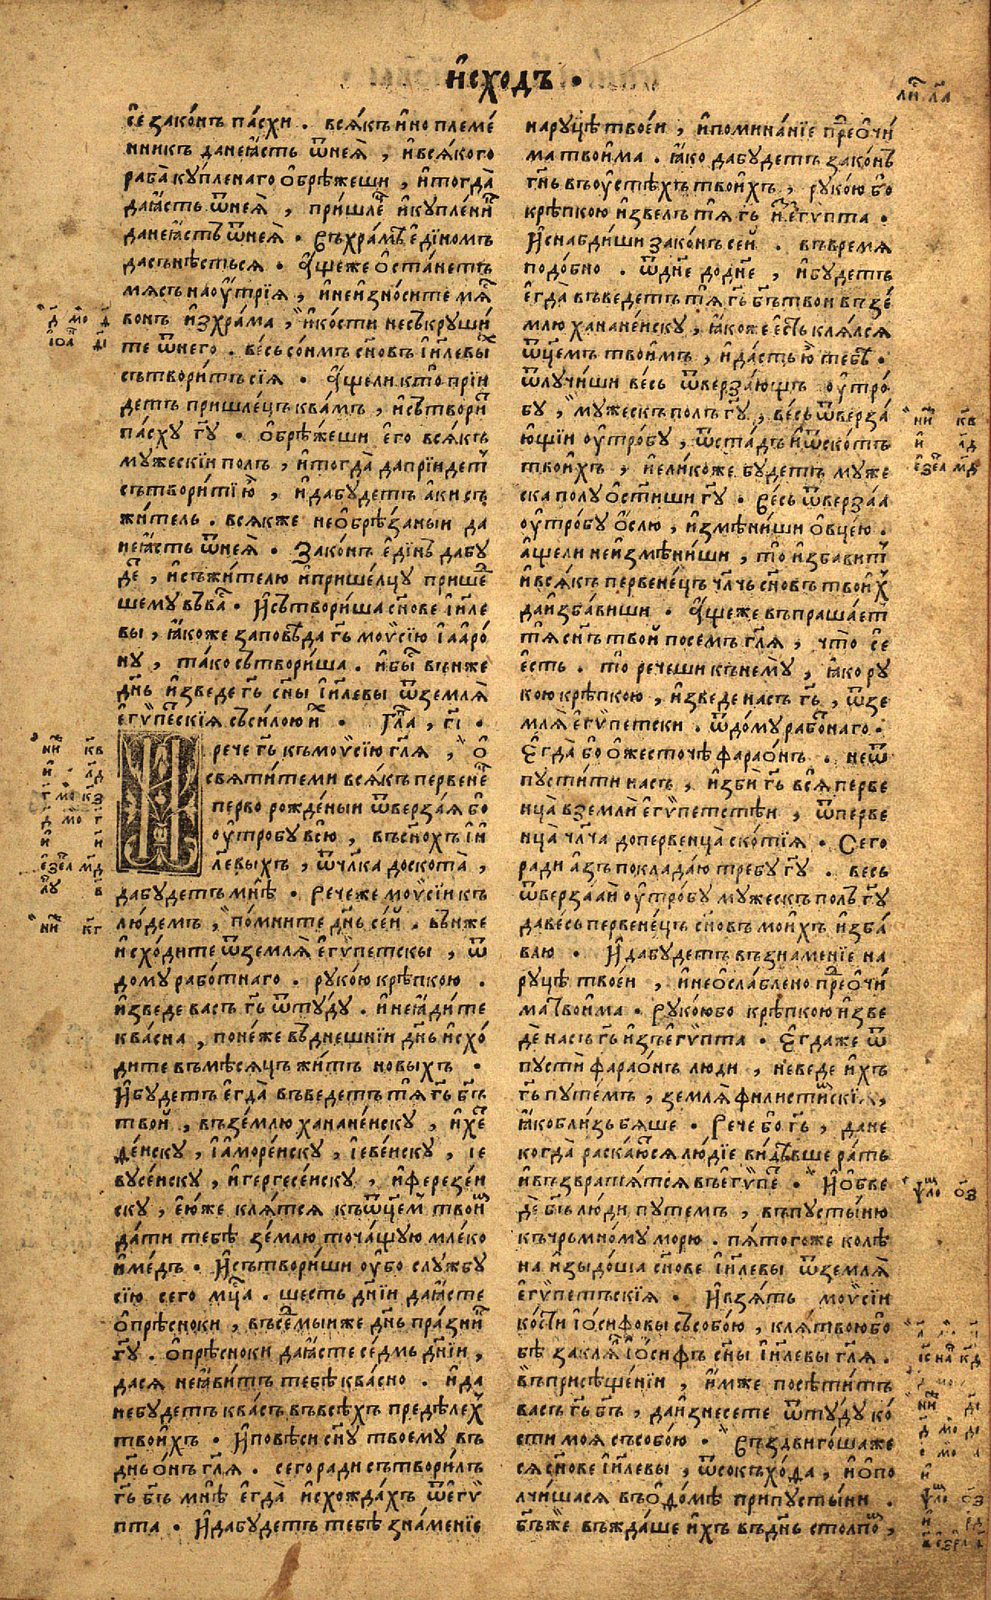 и҆схо́дъ ·
ли́ л҃а
се зако́нъ па́схи . всѧкъ и҆но племе́
нникъ данеꙗ҆́сть ѿнеѧ̀ , и҆всѧкого
раба̀ ку́пленаго о҆брѣ́жеши , и҆тогда̀
даꙗ҆́сть ѿнеѧ̀ , пришлⷰе и҆купле́нїи
данеꙗ҆́стъ ѿнеѧ̀ . Въхра́мѣ е҆ди́номъ
дасънѣ́стьсѧ . А҆́щеже о҆ста́нетъ
мѧсъ нао҆у́трїѧ , и҆неи҆зно́сите мѧⷭ
вонъ и҆зхра́ма , и҆ко́сти несъкруши́
те ѿнего̀ . ве́сь со́нмъ сн҃овъ і҆и҃левыⷯ
сътвори́тъсїѧ . А҆́щели кто̀ прїи
детъ пришле́цъ ква́мъ , и҆сътвори́ⷮ
па́сху гу҃ . о҆брѣ́жеши е҆го̀ всѧкъ
му́жескїи полъ , и҆тогда̀ дапрїи́детъ
сътвори́ти ю҆̀ , и҆дабу́детъ а҆́ки съ
жи́тель . всѧкже нео҆брѣ́заныи да
неꙗ҆́сть ѿнеѧ̀ . Зако́нъ е҆ди́нъ дабу
деⷮ , и҆съжи́телю и҆прише́лцу прише́ⷣ
шему въваⷭ . И҆сътвори́ша сн҃ове і҆и҃ле
вы , ꙗ҆́коже заповѣ́да гь҃ мою҆сїю і҆а҆аро́
ну , та́ко сътвори́ша . и҆быⷭ въи́нже
дн҃ь и҆зведе гь҃ сн҃ы і҆и҃левы ѿземлѧ̀
е҆гѵ́петскїѧ съси́лою иⷯ . Гла҃ , гі҃ .
И рече гь҃ къмоѵ҆сїю гл҃ѧ , о҆
свѧти́теми всѧкъ первенеⷰ
перво рожде́ныи ѿверза́ѧ бо
о҆утро́бу всю̀ , въсн҃охъ і҆и҃
левыхъ , ѿчл҃ка доскота̀ ,
дабу́детъ мнѣ̀ . Речеже моѵ҆сїи къ
лю́демъ , по́мните дн҃ь се́й . въи́нже
и҆схо́дите ѿземлѧ̀ е҆гѵ́петскы , ѿ
дому рабо́тнаго . руко́ю крѣ́пкою .
и҆зведе ва́съ гь҃ ѿту́ду . и҆неꙗ҆ди́те
ква́сна , поне́же въ́днешнїи дн҃ь и҆схо́
дите въмѣ́сѧцъ жи́тъ новыхъ .
И҆бу́детъ е҆гда̀ въведе́тъ тѧ гь҃ бъ҃
тво́й , въземлю ханане́йску , и҆хеⷮ
де́йску , і҆а҆море́йску , і҆е҆ве́йску , і҆е
вусе́йску , и҆гергесе́йску , и҆ферезе́и
ску , е҆ю́же клѧ́тсѧ къѿце́мъ твои́ⷨ
да́ти тебѣ̀ зе́млю точа́щую мле́ко
и҆ме́дъ . И҆сътвори́ши о҆убо слу́жбу
сїю сего мц҃а . ше́сть дн҃їи даꙗ҆́сте
о҆прѣсноки , въсе́мыиже дн҃ь пра́здниⷦ
гу҃ . о҆прѣсноки даꙗ҆́сте се́дмь дн҃їи ,
дасѧ неꙗ҆ви́тъ тебѣ̀ ква́сно . и҆да
небу́детъ ква́съ въвсѣ́хъ предѣ́лехъ
твои́хъ . И҆повѣ́си сн҃у твоему въ
дн҃ь о́нъ гл҃ѧ . сего ра́ди сътвори́лъ
гь҃ бъ҃ мнѣ̀ е҆гда̀ и҆схожда́хъ ѿе҆гѵ́
пта . И҆дабу́детъ тебѣ̀ зна́менїе
наруцѣ̀ твое́и , и҆помина́нїе преⷣо́чи́
ма твои́ма . ꙗ҆́ко дабу́детъ зако́нъ
гн҃ь въо҆устѣ́хъ твои́хъ , руко́ю бо
крѣ́пкою и҆зве́лъ тѧ гь҃ и҆зъ е҆гѵ́пта .
И҆снабди́ши зако́нъ се́й . въвре́мѧ
подо́бно . ѿднѐ доднѐ , и҆бу́детъ
е҆гда̀ въведе́тъ тѧ гь҃ бъ҃ твои въ зе́
млю ханане́йску , ꙗ҆коже е҆́сть клѧ́лсѧ
ѿце́мъ твои́мъ , и҆да́сть ю҆̀ тебѣ̀ .
ѿлучи́ши ве́сь ѿверза́ющъ о҆утро́
бу , му́жескъ полъ гу҃ , ве́сь ѿверза́
ющїи о҆утро́бу , ѿста́дъ и҆ѿско́тъ
твои́хъ , и҆ели́коже бу́детъ му́же
ска полу о҆стиши гу҃ . Ве́сь ѿверза́ѧ
о҆утро́бу о҆слю , и҆змѣни́ши о҆вцею .
а҆щели неи҆змѣни́ши , то̀ и҆збави́тⷭ
и҆всѧкъ первене́цъ чл҃чь сн҃овъ твои́ⷯ
даи҆зба́виши . А҆́щеже въпраша́етⷮ
тѧ сн҃ъ твой посемъ гл҃ѧ , что̀ се
е҆́сть . то̀ речеши къ нему̀ , ꙗ҆́ко ру
кою крѣ́пкою , и҆зведе насъ гь҃ , ѿзе
млѧ̀ е҆гѵ́петски . ѿдо́му рабо́тнаго .
Е҆гда̀ бо о҆жесточѣ̀ фарао́нъ . неѿ
пусти́ти насъ , и҆збѝ гь҃ всѧ пе́рве
нца̀ вземлѝ е҆гѵ́петстѣи , ѿпе́рве
нца̀ чл҃ча допервенца̀ ско́тїѧ . Сего
ра́ди а҆зъ поклада́ю тре́бу гу҃ . весь
ѿверза́ѧи о҆утро́бу му́жескъ полъ гу҃
даве́сь первене́цъ сн҃овъ мои́хъ и҆зба́
ваю . И҆дабу́детъ възна́менїе на
руцѣ̀ твое́и , и҆нео҆сла́блено преⷣо́чи́
ма твои́ма . Руко́юбо крѣ́пкою и҆зве
дѐ насъ гь҃ и҆зъе҆гѵ́пта . Е҆гдаже ѿ
пустѝ фарао́нъ люди , неведе и҆хъ
гь҃ путе́мъ , землѧ̀ филисти́мскїѧ ,
ꙗ҆́коблизъ бѧ́ше . Рече бо гь҃ , дане
когда̀ раска́ютсѧ лю́дїе ви́дѣвше ра́ть
и҆възвратѧ́тсѧ въе҆гѵ́пеⷮ . И҆о҆бве
дѐ бъ҃ лю́ди путе́мъ , въпусты́ню
къчрьмно́му мо́рю . пѧ́тогоже колѣ̀
на и҆зыдо́ша сн҃ове і҆и҃левы ѿземлѧ̀
е҆гѵ́петъскїѧ . И҆взѧ́тъ моѵ҆сїи
ко́сти і҆о҆сифовы съсобо́ю , клѧ́твоюбо
бѣ̀ заклѧ́лъ і҆о҆сифъ сн҃ы і҆и҃левы гл҃ѧ .
въприсѣще́нїи , и҆мже посѣти́тъ
ва́съ гь҃ бъ҃ , даи҆знесете ѿту́ду ко́
сти моѧ̀ съсобо́ю . Въздвиго́шаже
сѧ сн҃ове і҆и҃левы , ѿсокъхо́да , и҆о҆по
лчи́шасѧ въо҆до́мѣ припусты́ни .
бъ҃же вѣжда́ше и҆хъ въдн҃ь столпоⷨ ,